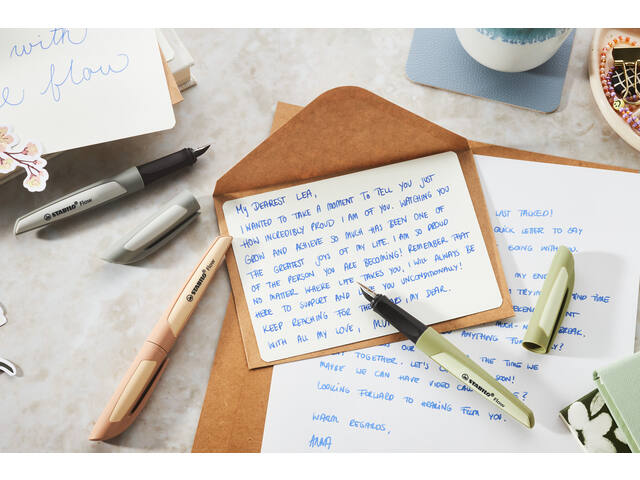 with
flow
STABILO flow
STABILO flow
STABILO flow
MY DEAREST LEA,
I WANTED TO TAKE A MOMENT TO TELL YOU JUST
HOW INCREDIBLY PROUD I AM OF YOU. WATCHING YOU
GROW AND ACHIEVE SO MUCH HAS BEEN ONE OF
THE GREATEST JOYS OF MY LIFE. I AM SO PROUD
OF THE PERSON YOU ARE BECOMING! REMEMBER THAT
NO MATTER WHERE LIFE TAKES YOU, I WILL ALWAYS BE
HERE TO SUPPORT AND YOU UNCONDITIONALLY!
KEEP REACHING FOR THE MY DEAR.
WITH ALL MY LOVE,
LAST TALKED!
QUICK LETTER TO SAY
GOING WITH YOU.
MY
TIME
BREAK.
ANYTHING
OUR THE TIME WE
TOGETHER. LET'S
MAYBE WE CAN HAVE VIDEO
LOOKING FORWARD TO HEARING FROM YOU.
WARM REGARDS,
ANNA